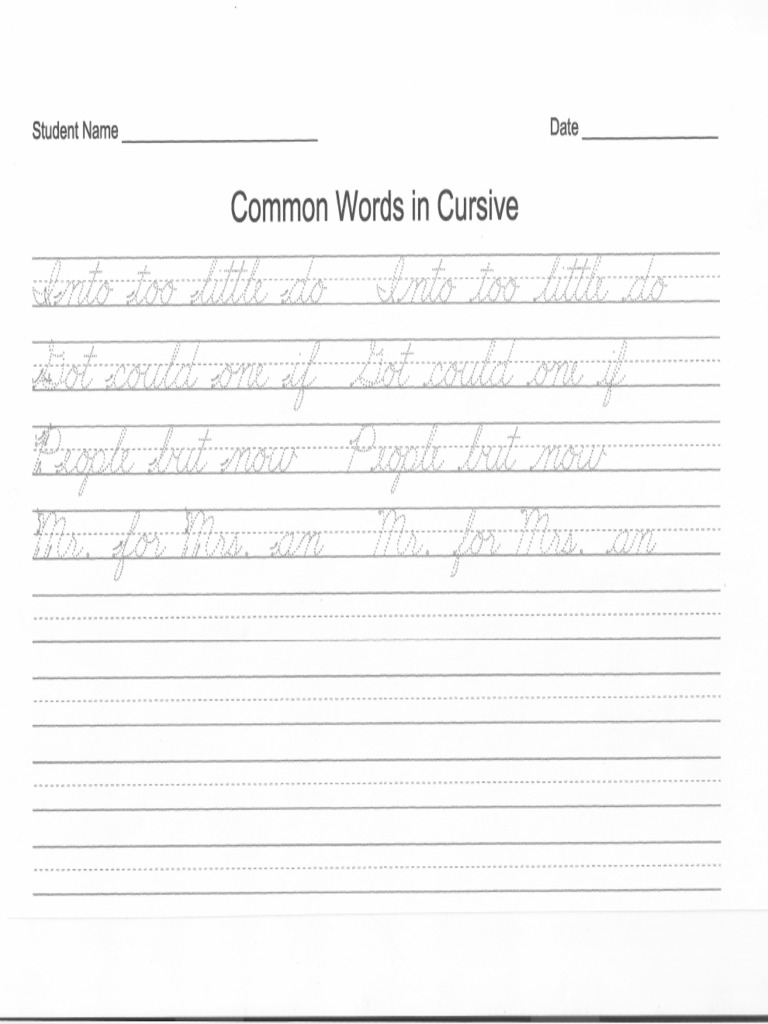 Student Name Date
Common Words in Cursive
Into too little do Into too little do
Got could one if Got could one if
People but now People but now
Mr. for Mrs. an Mr. for Mrs. an